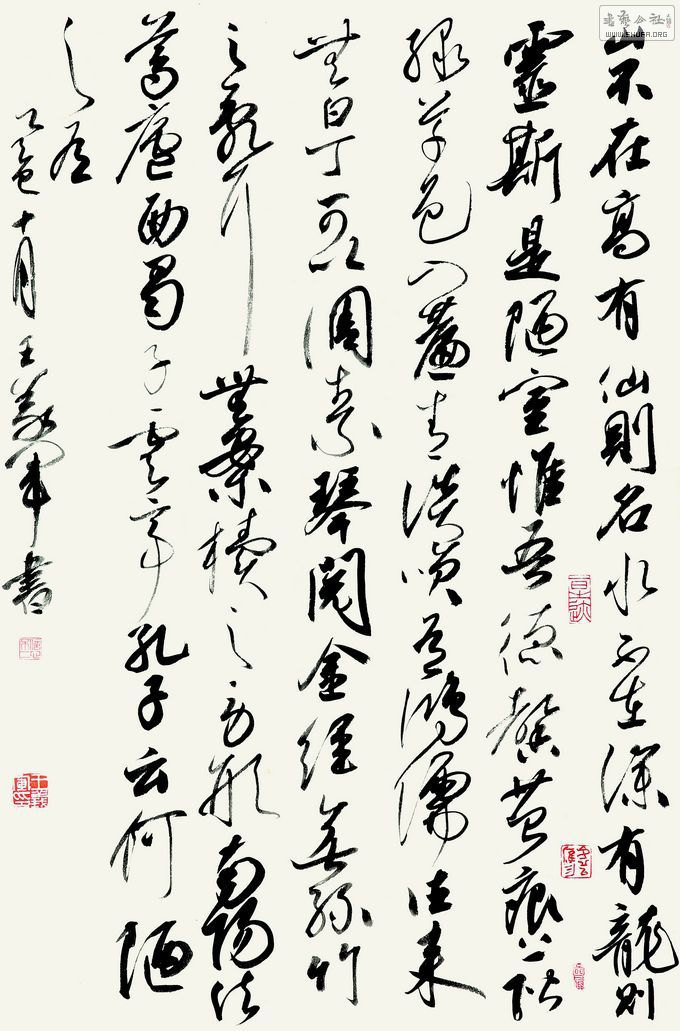 山不在高有仙則名水不在深有龍則
靈斯是陋室惟吾德馨苔痕上階
綠草色入簾青談笑有鴻儒往來
無白丁可以調素琴閱金經無絲竹
之亂耳無案牘之勞形南陽諸
葛廬西蜀子雲亭孔子云何陋
之有
乙酉十月王義軍書
書藝公社
WWW.SHUFA.ORG